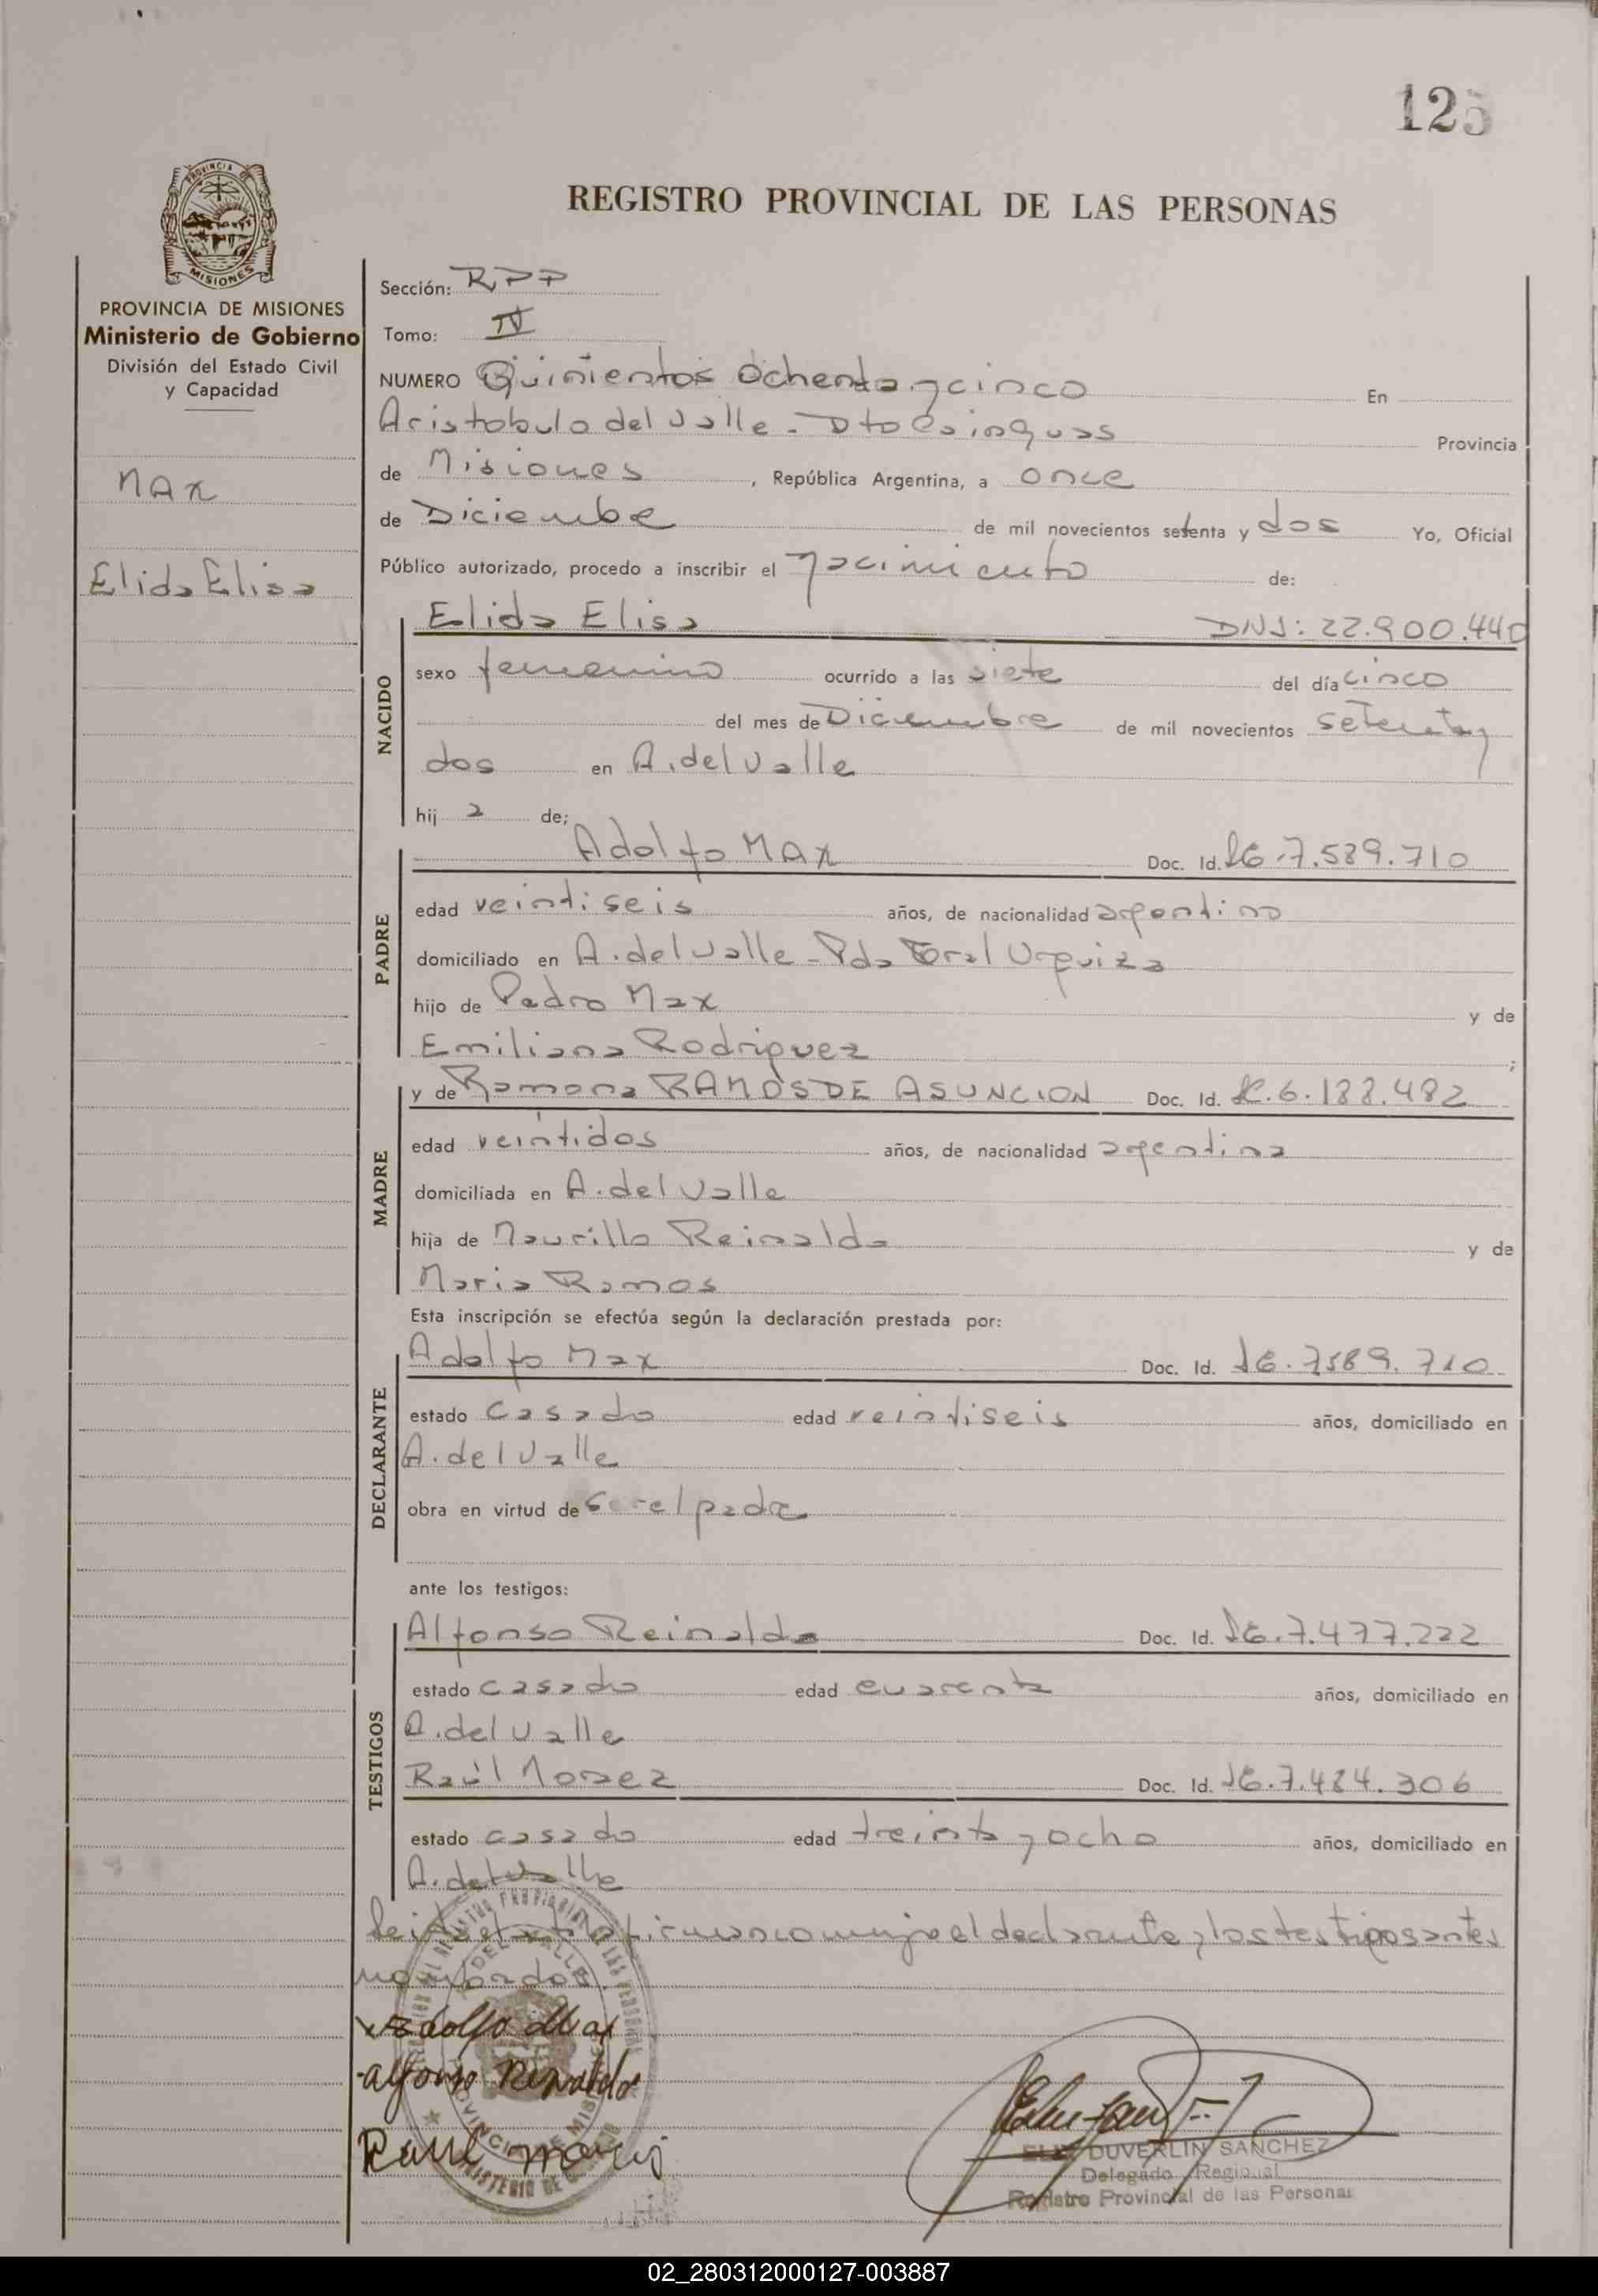 125
REGISTRO PROVINCIAL DE LAS PERSONAS
PROVINCIA DE MISIONES
MISIONES
PROVINCIA DE MISIONES
Ministerio de Gobierno
División del Estado Civil
y Capacidad
MAX
Elida Elisa
Sección: RPP
Tomo: IV
NUMERO Quinientos Ochenta y cinco En
Aristobulo del Valle - Dto Cainguas Provincia
de Misiones, República Argentina, a once
de Diciembre de mil novecientos setenta y dos Yo, Oficial
Público autorizado, procedo a inscribir el nacimiento de:
NACIDO
Elida Elisa DNI: 22.900.440
sexo femenino ocurrido a las siete del día cinco
del mes de Diciembre de mil novecientos setenta y
dos en A. del Valle
hij a de;
PADRE
Adolfo MAX Doc. Id. 7.589.710
edad veintiseis años, de nacionalidad argentino
domiciliado en A. del Valle - Pda Gral Urquiza
hijo de Pedro Max y de
Emiliana Rodriguez ;
MADRE
y de Ramona RAMOS DE ASUNCION Doc. Id. 6.188.482
edad veintidos años, de nacionalidad argentina
domiciliada en A. del Valle
hija de Maurillo Reinaldo y de
Maria Ramos
Esta inscripción se efectúa según la declaración prestada por:
DECLARANTE
Adolfo Max Doc. Id. 7589.710
estado casado edad veintiseis años, domiciliado en
A. del Valle
obra en virtud de ser el padre
ante los testigos:
TESTIGOS
Alfonso Reinaldo Doc. Id. 7.477.222
estado casado edad cuarenta años, domiciliado en
A. del Valle
Raúl Doc. Id. 7.484.306
estado casado edad treinta y ocho años, domiciliado en
A. del Valle
Leida el acta firman conmigo el declarante y los testigos antes
nombrados
Adolfo Max
alfonso Reinaldo
Raul
DUVERLIN SANCHEZ
Delegado Regional
Registro Provincial de las Personas
02_280312000127-003887